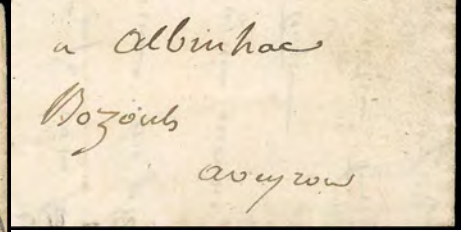 a albinhac
Bozouls
aveyron